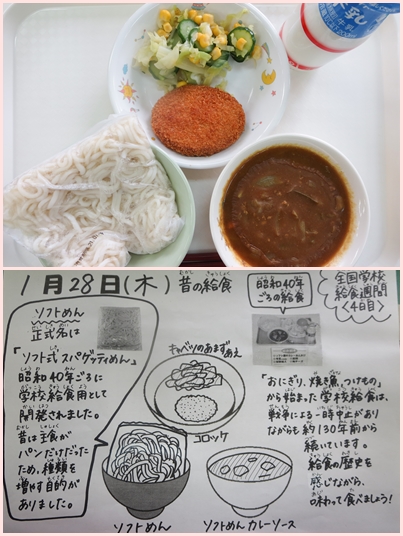 1月28日(木) 昔の給食
むかし きゅうしょく
昭和40年
ごろの給食
全国学校
給食週間
〈4日目〉
ソフトめん
正式名は
「ソフト式スパゲティめん」
昭和40年ごろに
学校給食用として
開発されました。
昔は主食が
パンだけだった
ため、種類を
増やす目的が
ありました。
キャベツのあまずあえ
コロッケ
ソフトめん
ソフトめんカレーソース
「おにぎり、焼き魚、つけもの」
から始まった学校給食は、
戦争による一時中止があり
ながらも約130年前から
続いています。
給食の歴史を
感じながら、
味わって食べましょう!